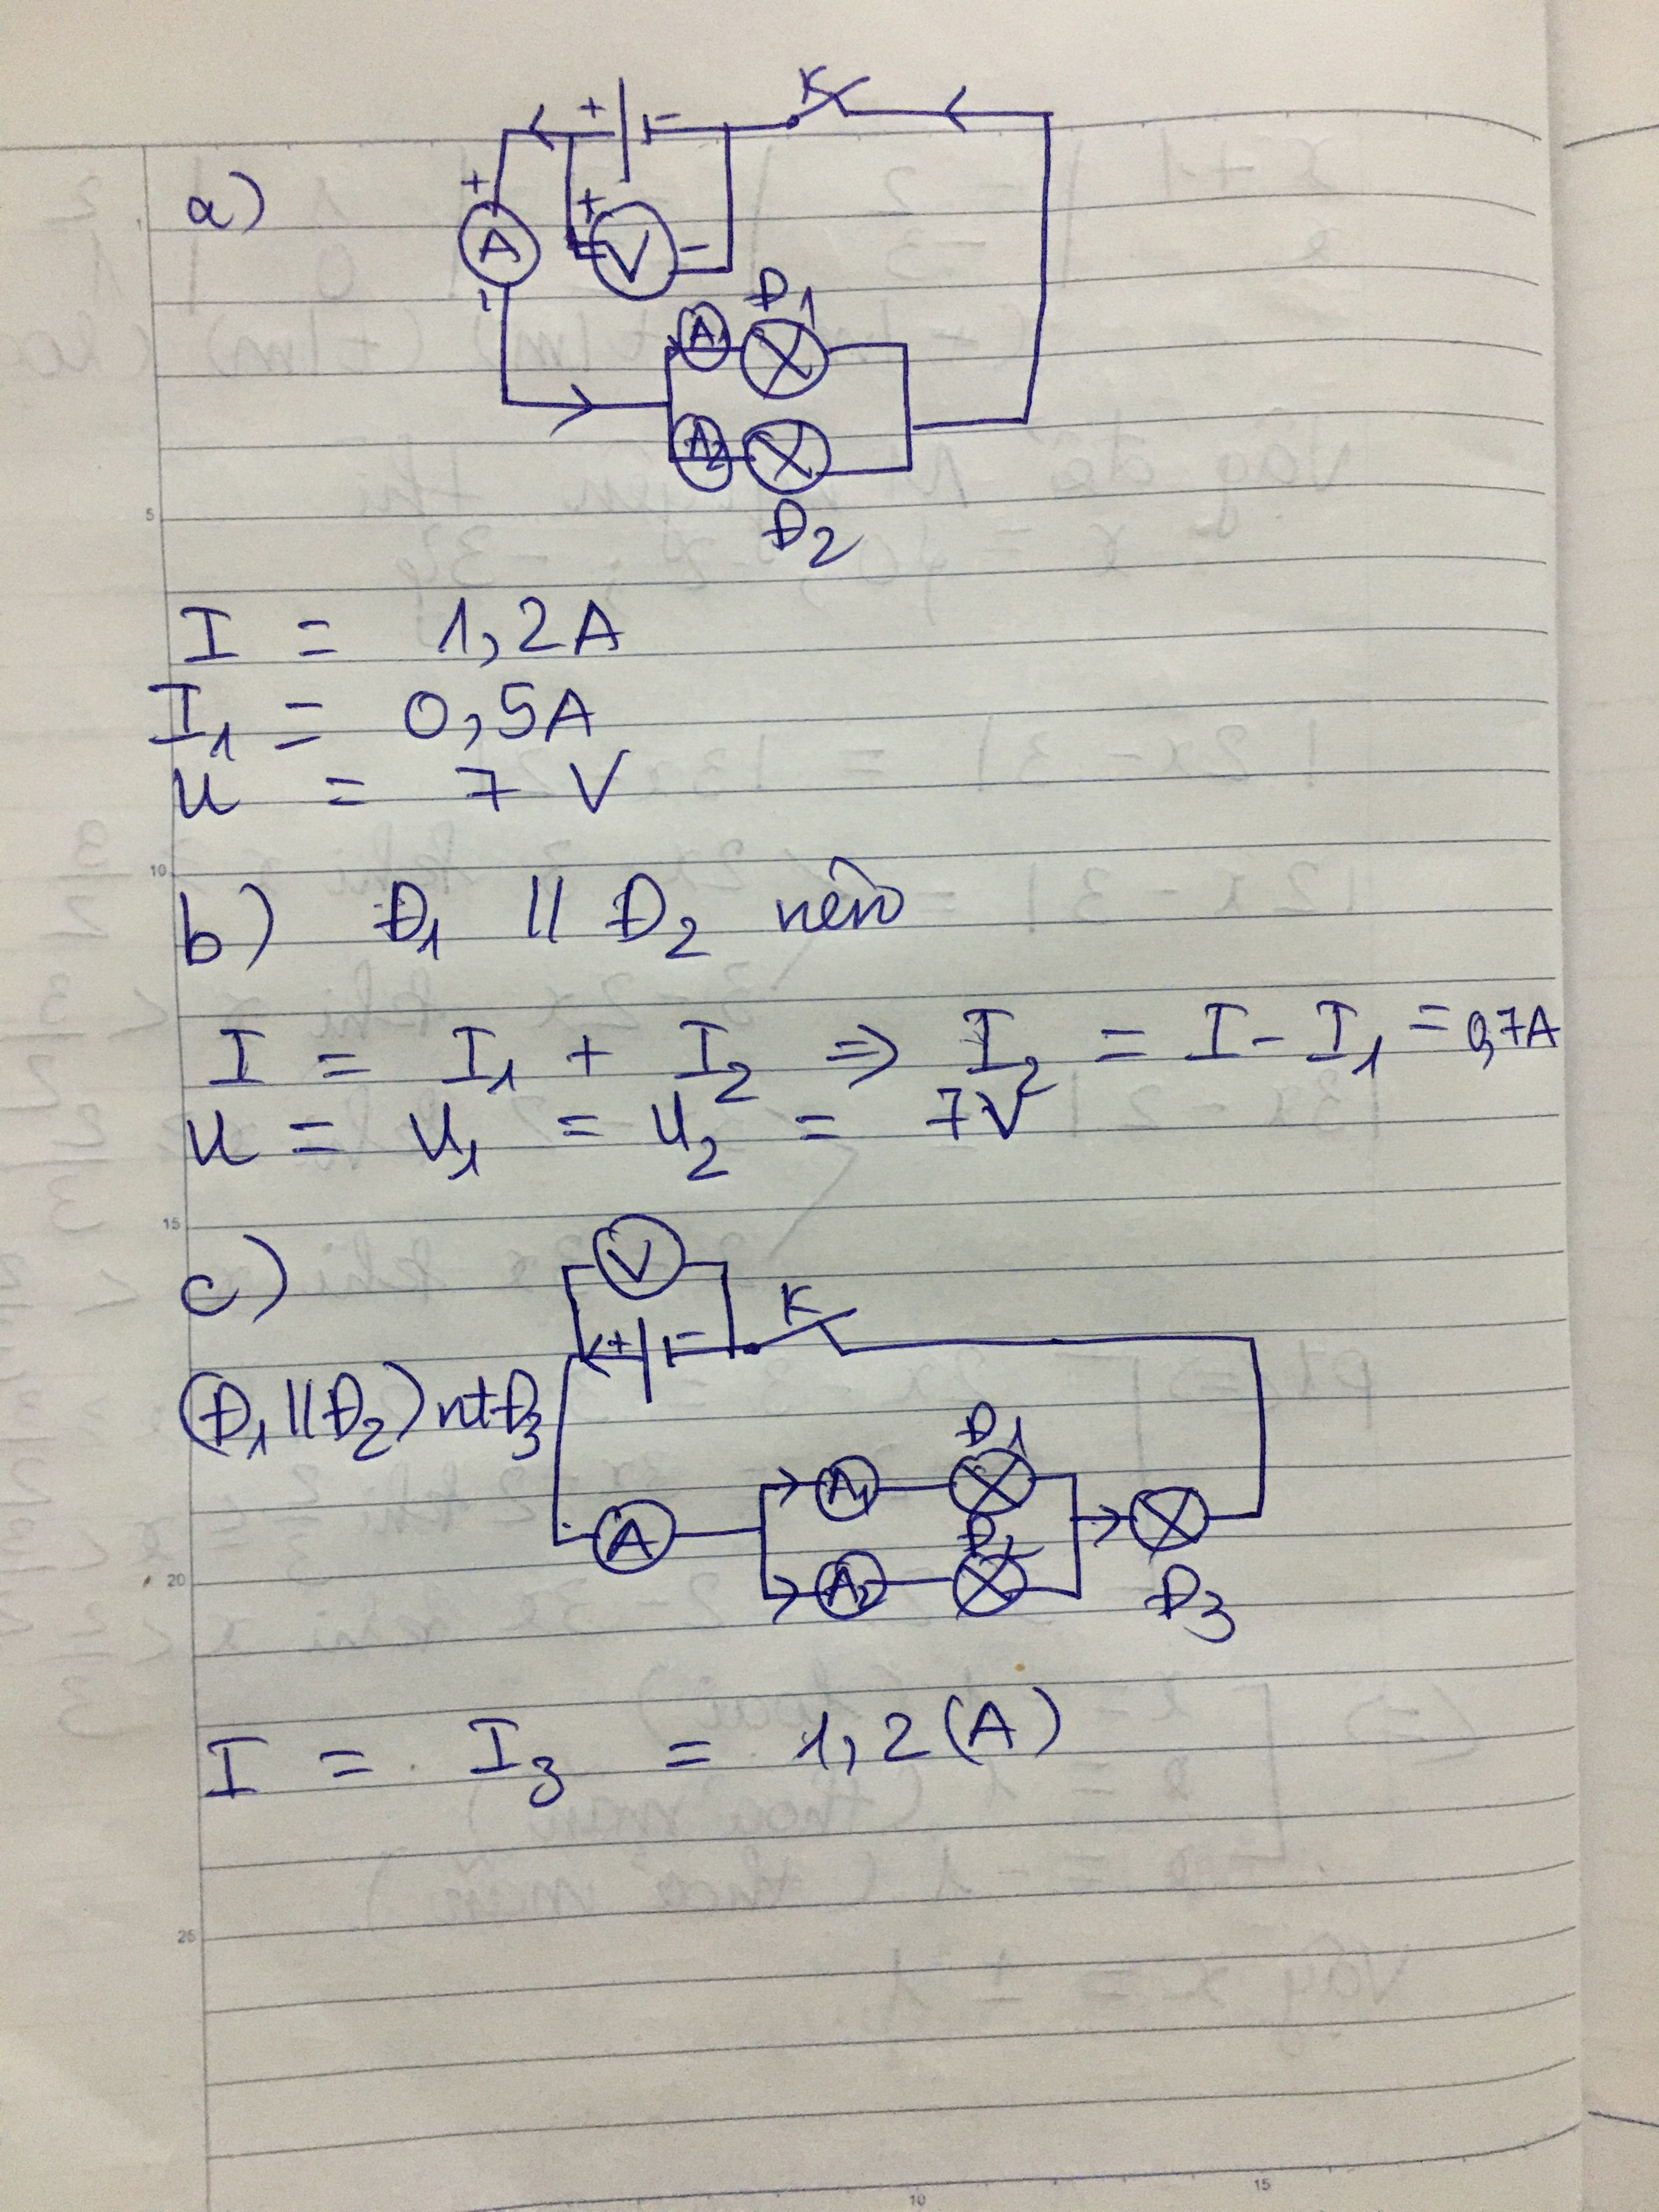 K
+ -
a)
+ +
A V -
Đ1
A1
A2
Đ2
5
I = 1,2A
I1 = 0,5A
U = 7 V
10
b) Đ1 // Đ2 nên
I = I1 + I2 => I2 = I - I1 = 0,7A
U = U1 = U2 = 7V
15
c) V
K
+ -
(Đ1 // Đ2) nt Đ3
Đ1
A1
A Đ2
20
A2 Đ3
I = I3 = 1,2 (A)
25
10 15